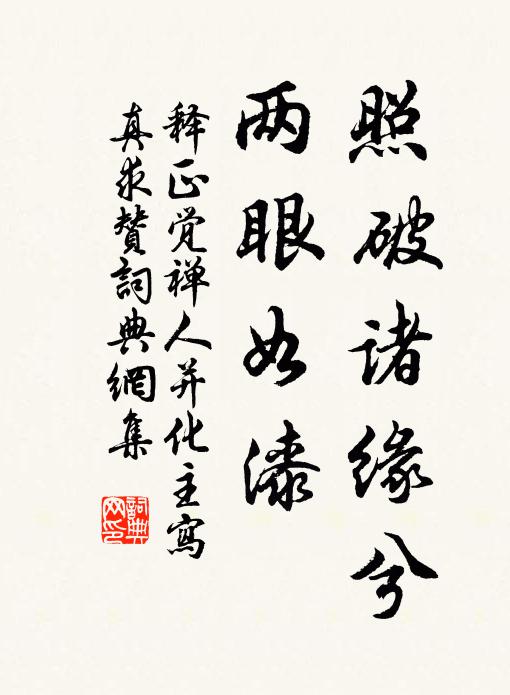 照破诸缘兮
两眼如漆
释正觉禅人并化主寫
真求賛詞典網集
詞典网印